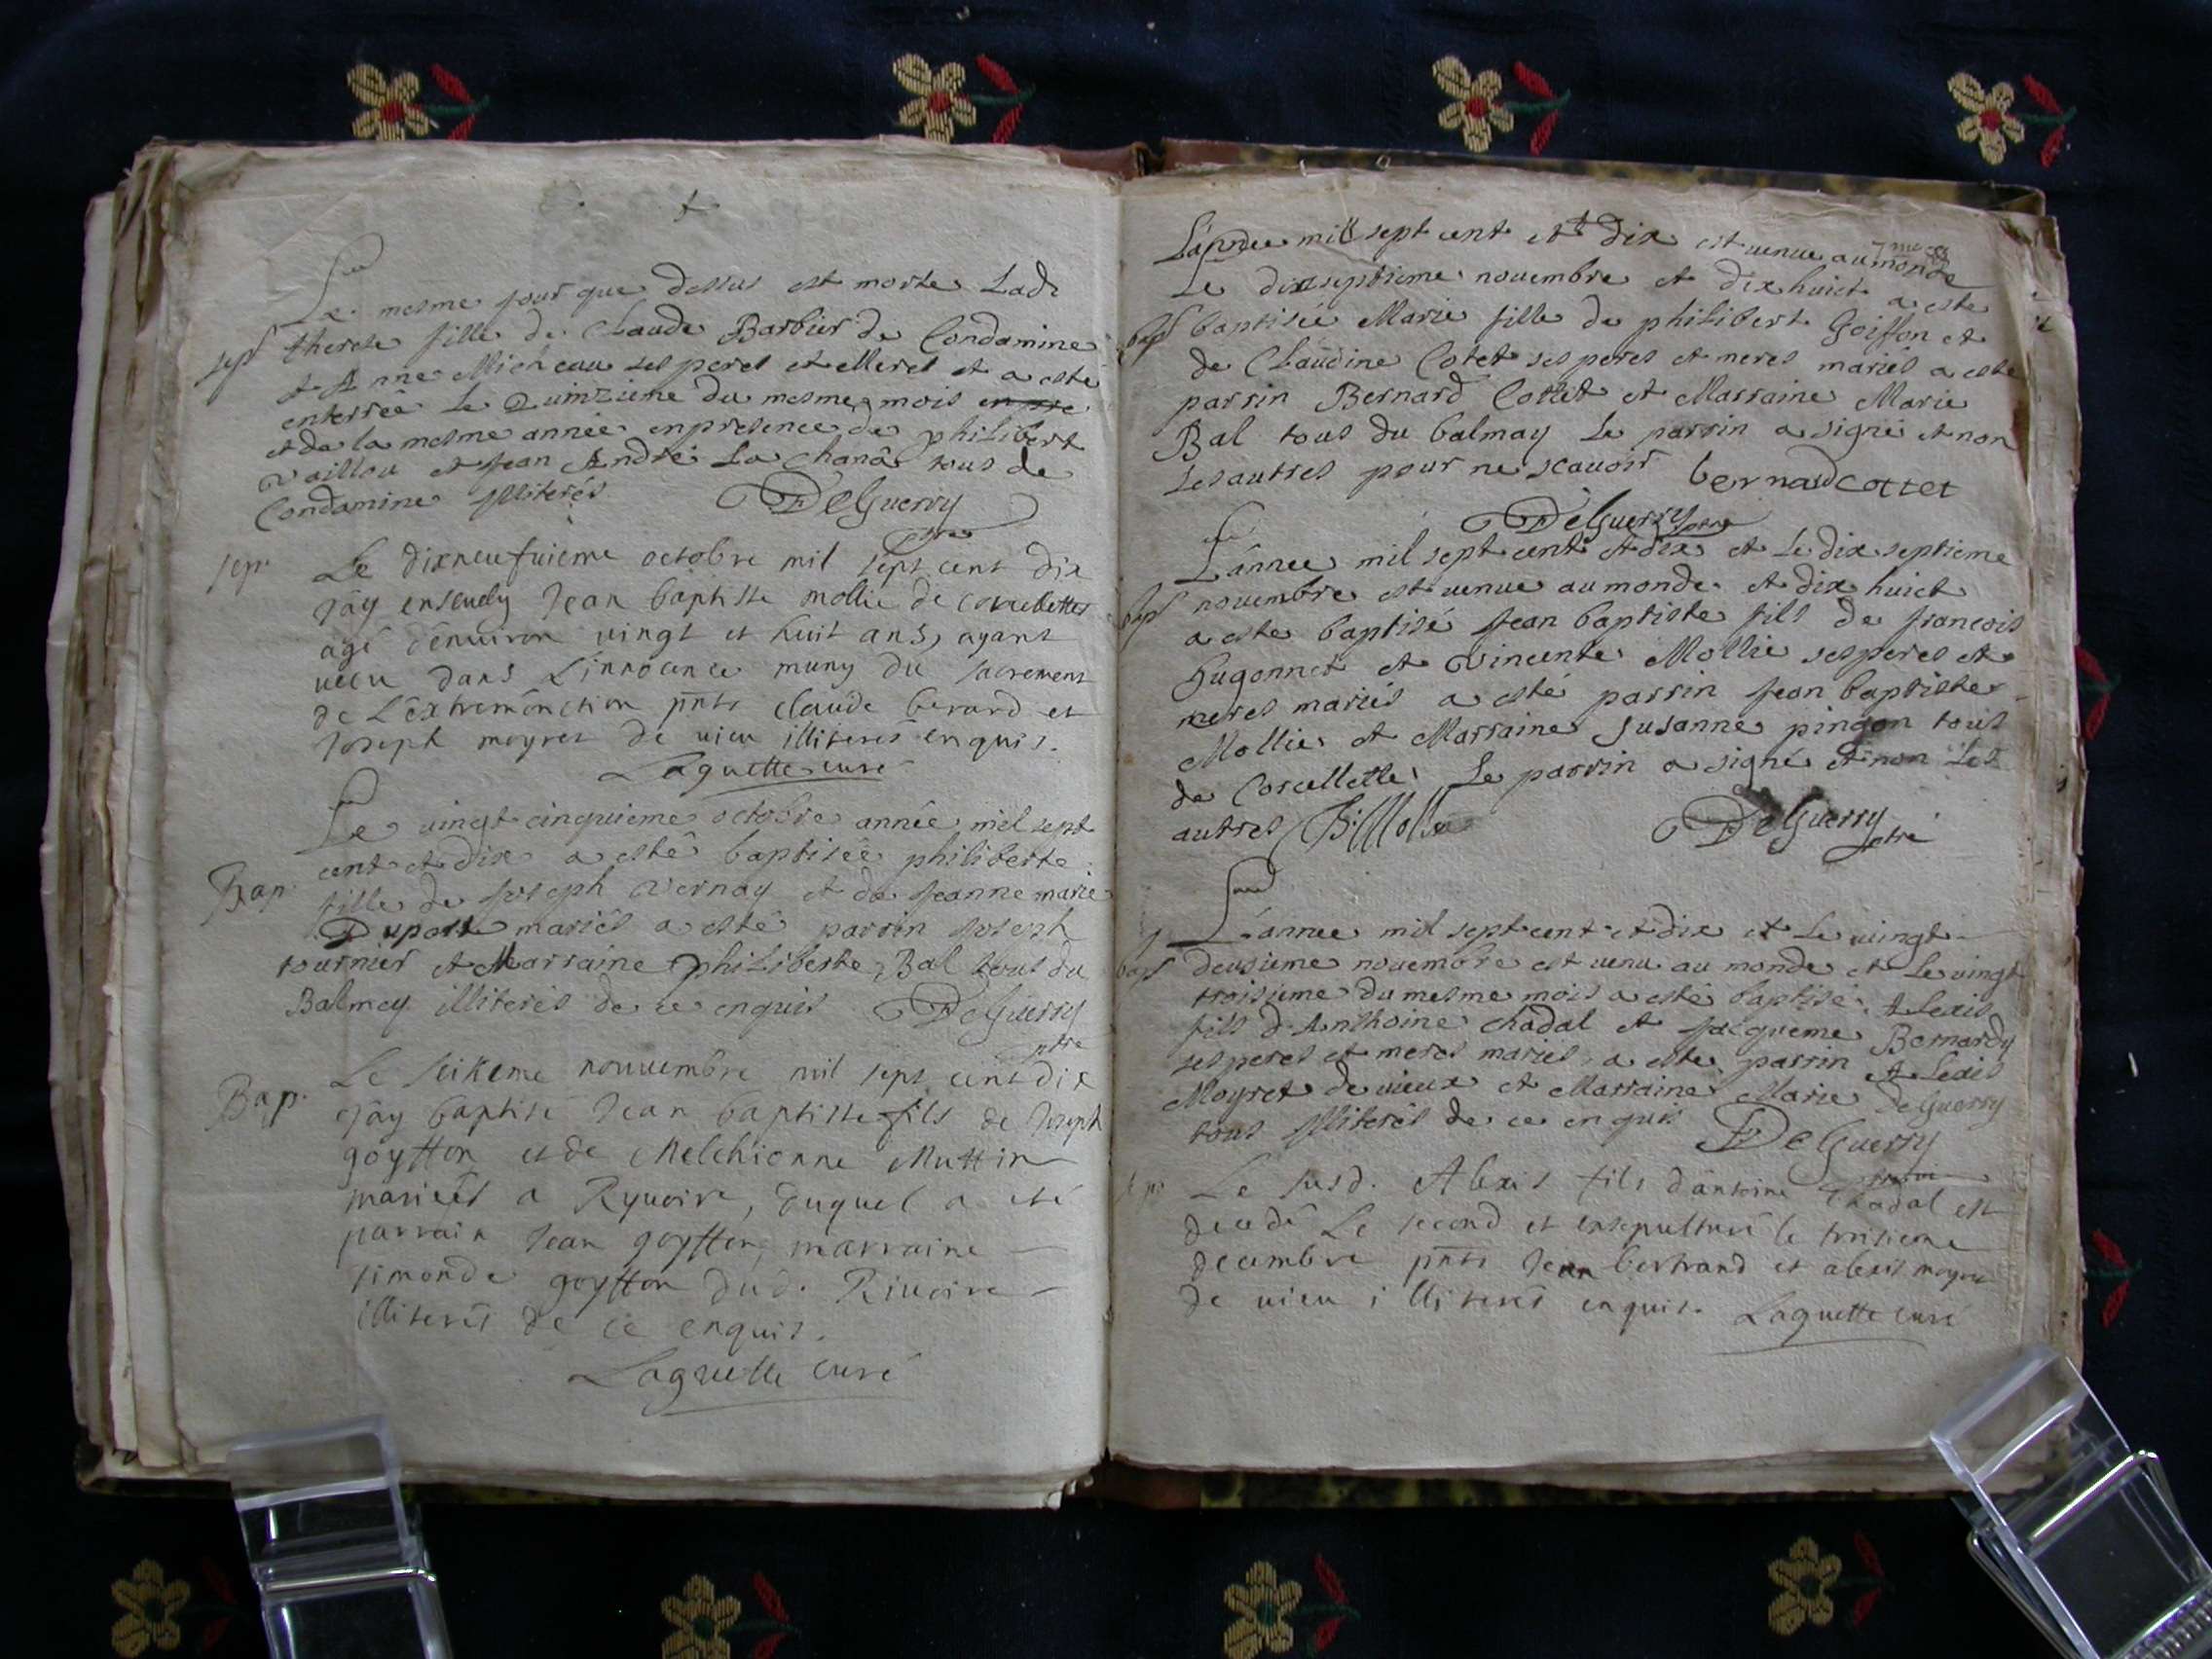 Le mesme jour que dessus est morte Lade
sept therese fille de Claude Barbier de Condamine
et Anne Micheau ses peres et Meres et a esté
enterrée Le Quinzieme du mesme mois en pre
et de la mesme année en presence de philibert
Vaillou et Jean André La Chanâ tous de
Condamine Illiterés DeGuerry
ptre
sep. Le dixneufuieme octobre mil sept cent dix
Jây enseuely Jean baptiste mollie de corcelettes
agé d'enuiron vingt et huit ans, ayant
uecu dans L'innocence muny du sacrement
de L'extremônction pnts claude berard et
Joseph moyret de uieu illiterés enquis.
Laguette curé
Le vingt cinquieme octobre année mil sept
cent et dix a esté baptisée philiberte
Bap. fille de Joseph Vernay et de Jeanne marie
Duport mariés a esté parrin Joseph
tournier et Marraine philiberte Bal tous du
Balmey illiterés de ce enquis DeGuerry
ptre
Bap. Le seizieme nouuembre mil sept cent dix
Jây baptisé Jean baptiste fils de Joseph
goyffon et de Melchionne Muttin
mariés a Ryuoire, duquel a eté
parrain Jean goyffon, marraine
simonde goyffon dud. Riuoire
illiterés de ce enquis.
Laguette curé
L'annee mil sept cent et dix est uenue au monde
Le dixseptieme nouembre et dix huict a esté
bapt baptisée Marie fille de philibert Goiffon et
de Claudine Cotet ses peres et meres mariés a esté
parrin Bernard Cottet et Marraine Marie
Bal tous du balmay Le parrin a signé et non
les autres pour ne scauoir bernard cottet
DeGuerry ptre
L'annee mil sept cent et dix et Le dix septieme
bapt nouembre est uenue au monde et dix huict
a esté baptisé Jean baptiste fils de francois
hugonnet et Vincente Mollie ses peres et
meres mariés a esté parrin Jean baptiste
Mollie et Marraine Susanne pingon tous
de Corcellette Le parrin a signé et non Les
autres DeGuerry
ptre
L'annee mil sept cent et dix et Le vingt
bapt deusieme nouembre est uenu au monde et Le vingt
troisieme du mesme mois a esté baptisé Alexis
fils d'Anthoine chadal et Jacqueme Bernardy
ses peres et meres mariés a esté parrin Alexis
Moyret de uieux et Marraine Marie DeGuerry
tous Illiterés de ce enquis DeGuerry
ptre
sep. Le susd. Alexis fils d'antoine Chadal est
decedé Le second et ensepulturé le troisieme
decembre pnts Jean bertrand et alexis moyret
de uieu illiterés enquis. Laguette curé